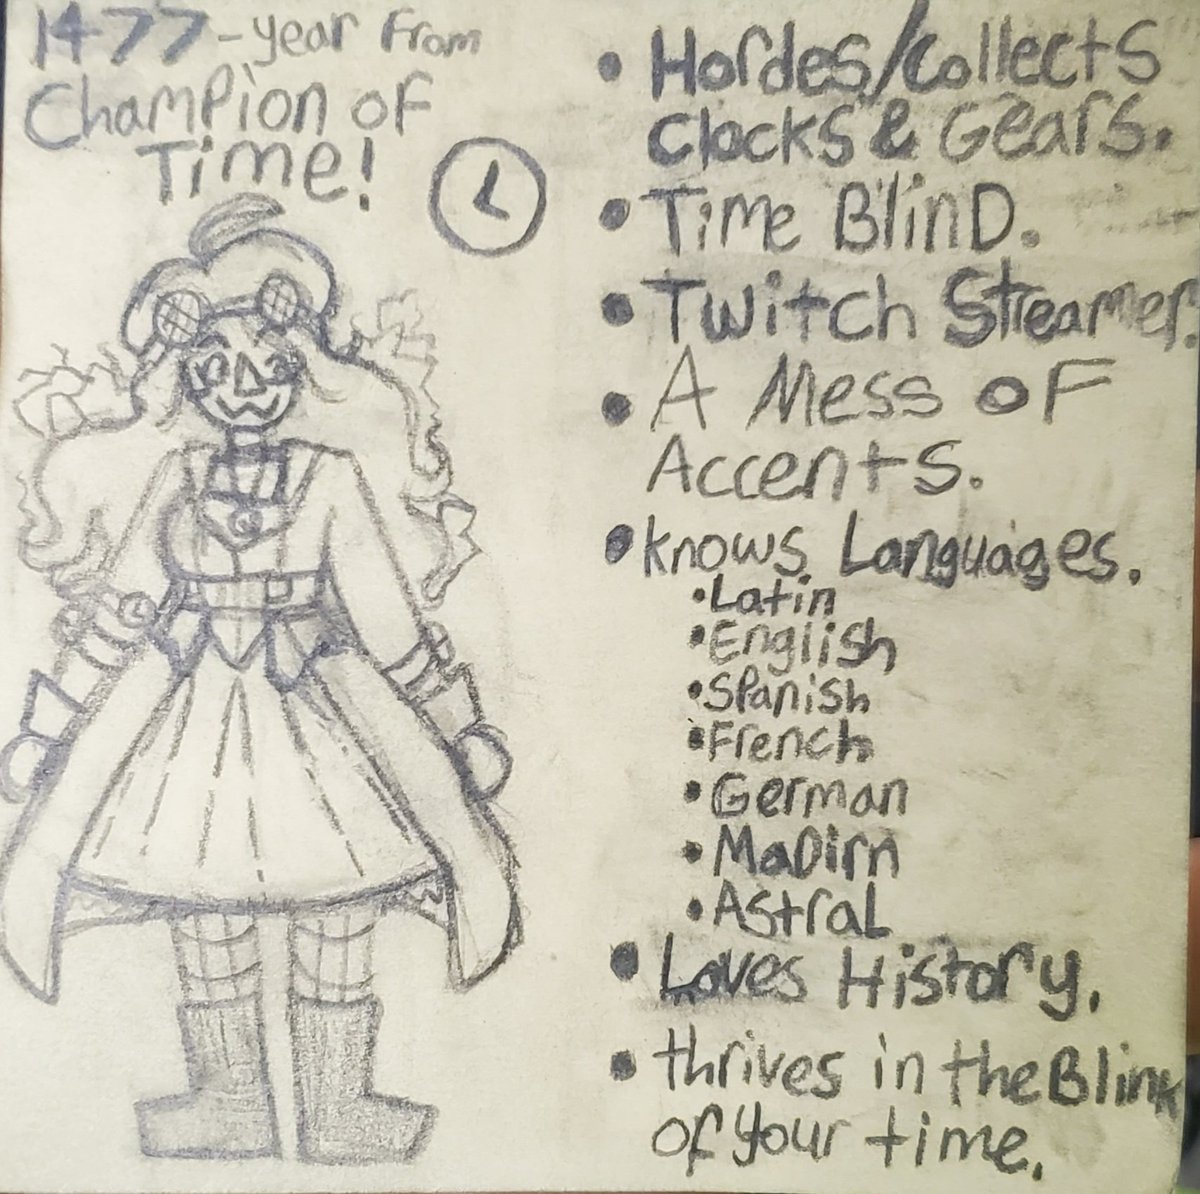 1477-year from
Champion of
Time!
• Hordes/Collects
Clocks & Gears.
• Time Blind.
• Twitch Streamer.
• A Mess of
Accents.
• knows Languages.
• Latin
• English
• Spanish
• French
• German
• MaDirn
• Astral
• Loves History.
• thrives in the Blink
of your time.